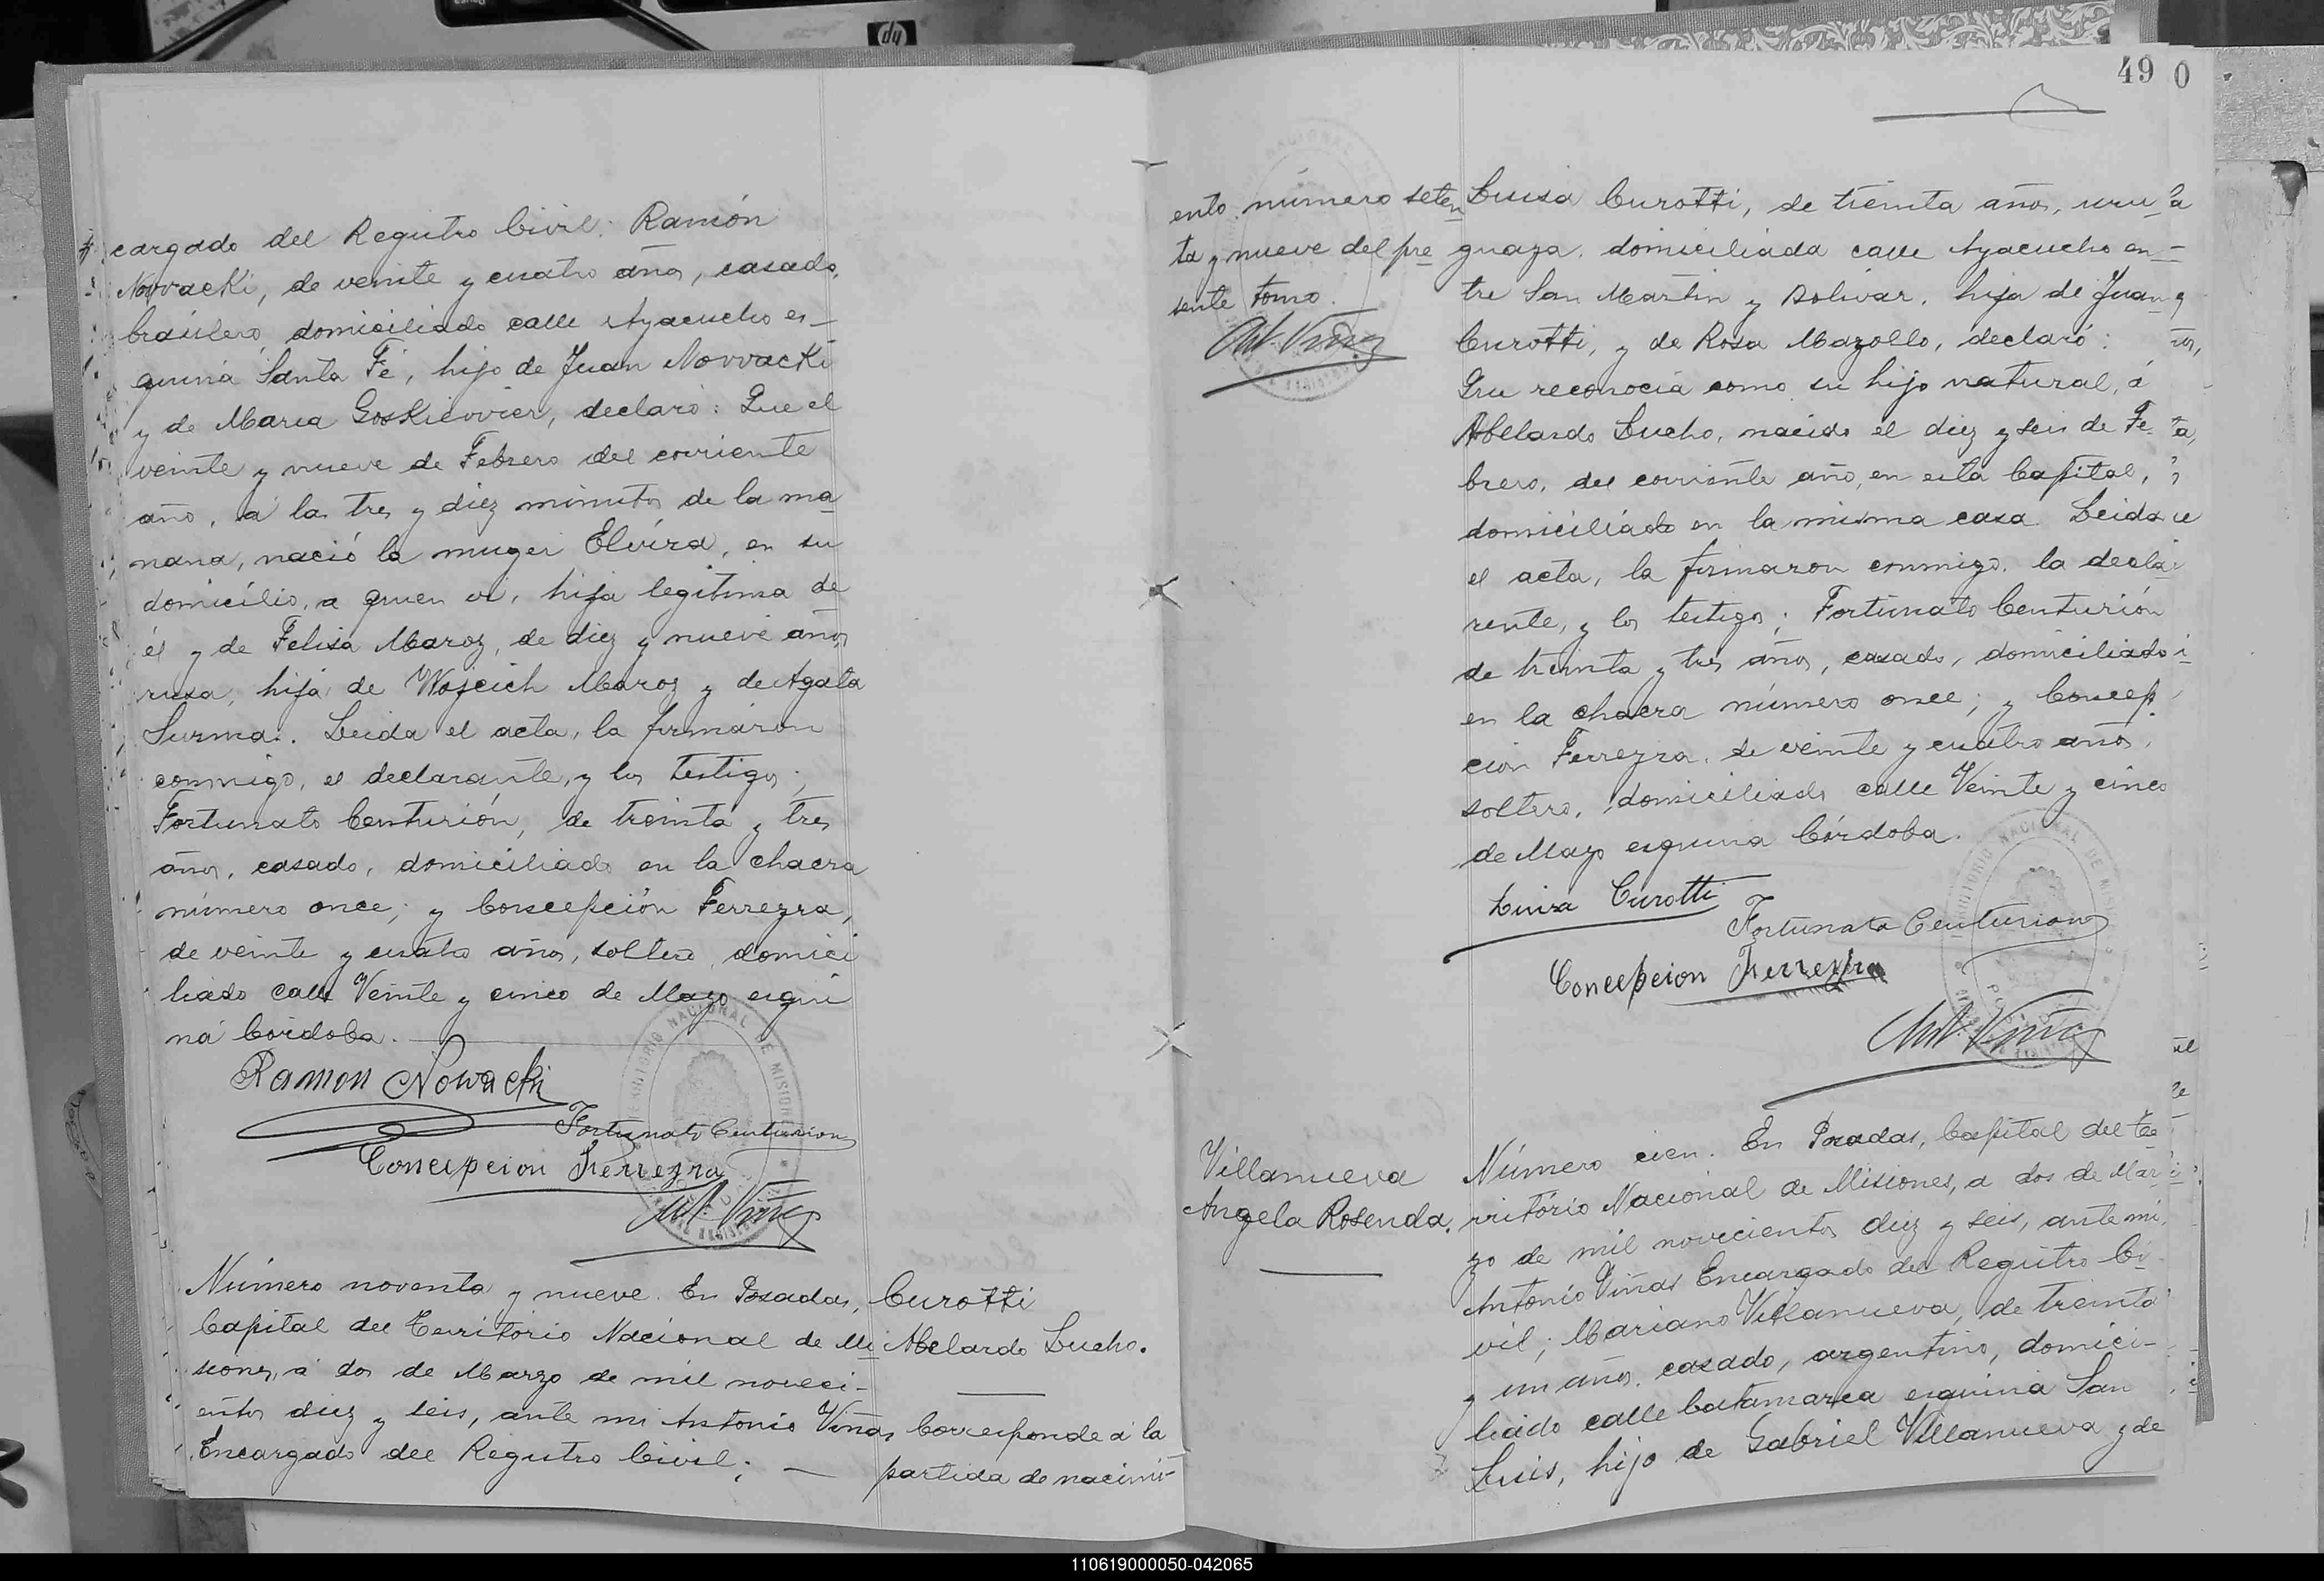 49
cargado del Registro Civil: Ramón
Novvacki, de veinte y cuatro años, casado,
brasilero, domiciliado calle Ayacucho es-
quina Santa Fé, hijo de Juan Novvacki
y de Maria Goskievvier, declaró: Que el
veinte y nueve de Febrero del corriente
año, á las tres y diez minutos de la ma
nana, nació la muger Elvira, en su
domicilio, a quien vi, hija legitima de
él y de Felisa Maroz, de diez y nueve años,
rusa, hija de Wojcich Maroz y de Agata
Surma. Leida el acta, la firmaron
conmigo, el declarante, y los testigos;
Fortunato Centurión, de treinta y tres
años, casado, domiciliado en la chacra
número once; y Concepción Ferreyra,
de veinte y cuatro años, soltero, domici
liado calle Veinte y cinco de Mayo esqui
na Córdoba.
Ramon Nowacki
Fortunato Centurion
Concepcion Ferreyra
Ant. Viñas
Número noventa y nueve. En Posadas,
Capital del Territorio Nacional de Mi
siones, á dos de Marzo de mil noveci-
entos diez y seis, ante mi Antonio Viñas
Encargado del Registro Civil; —
Curotti
Abelardo Lucho.
Corresponde á la
partida de nacimi-
ento número seten
ta y nueve del pre
sente tomo.
Ant Viñas
Luisa Curotti, de treinta años, uru
guaya, domiciliada calle Ayacucho en-
tre San Martin y Bolivar, hija de Juan
Curotti, y de Rosa Mazollo, declaró:
Que reconocia como su hijo natural, á
Abelardo Lucho, nacido el diez y seis de Fe
brero, del corriente año, en esta Capital,
domiciliado en la misma casa. Leida
el acta, la firmaron conmigo, la decla
rente, y los testigos; Fortunato Centurión
de treinta y tres años, casado, domiciliado
en la chacra número once; y Concep
cion Ferreyra, de veinte y cuatro años,
soltero, domiciliado calle Veinte y cinco
de Mayo esquina Córdoba.
Luisa Curotti
Fortunato Centurion
Concepcion Ferreyra
Ant. Viñas
Villanueva
Angela Rosenda.
Número cien. En Posadas, Capital del Te
rritório Nacional de Misiones, a dos de Mar
zo de mil novecientos diez y seis, ante mi,
Antonio Viñas Encargado del Registro Ci
vil; Mariano Villanueva, de treinta
y un años, casado, argentino, domici-
liado calle Catamarca esquina San
Luis, hijo de Gabriel Villanueva y de
110619000050-042065